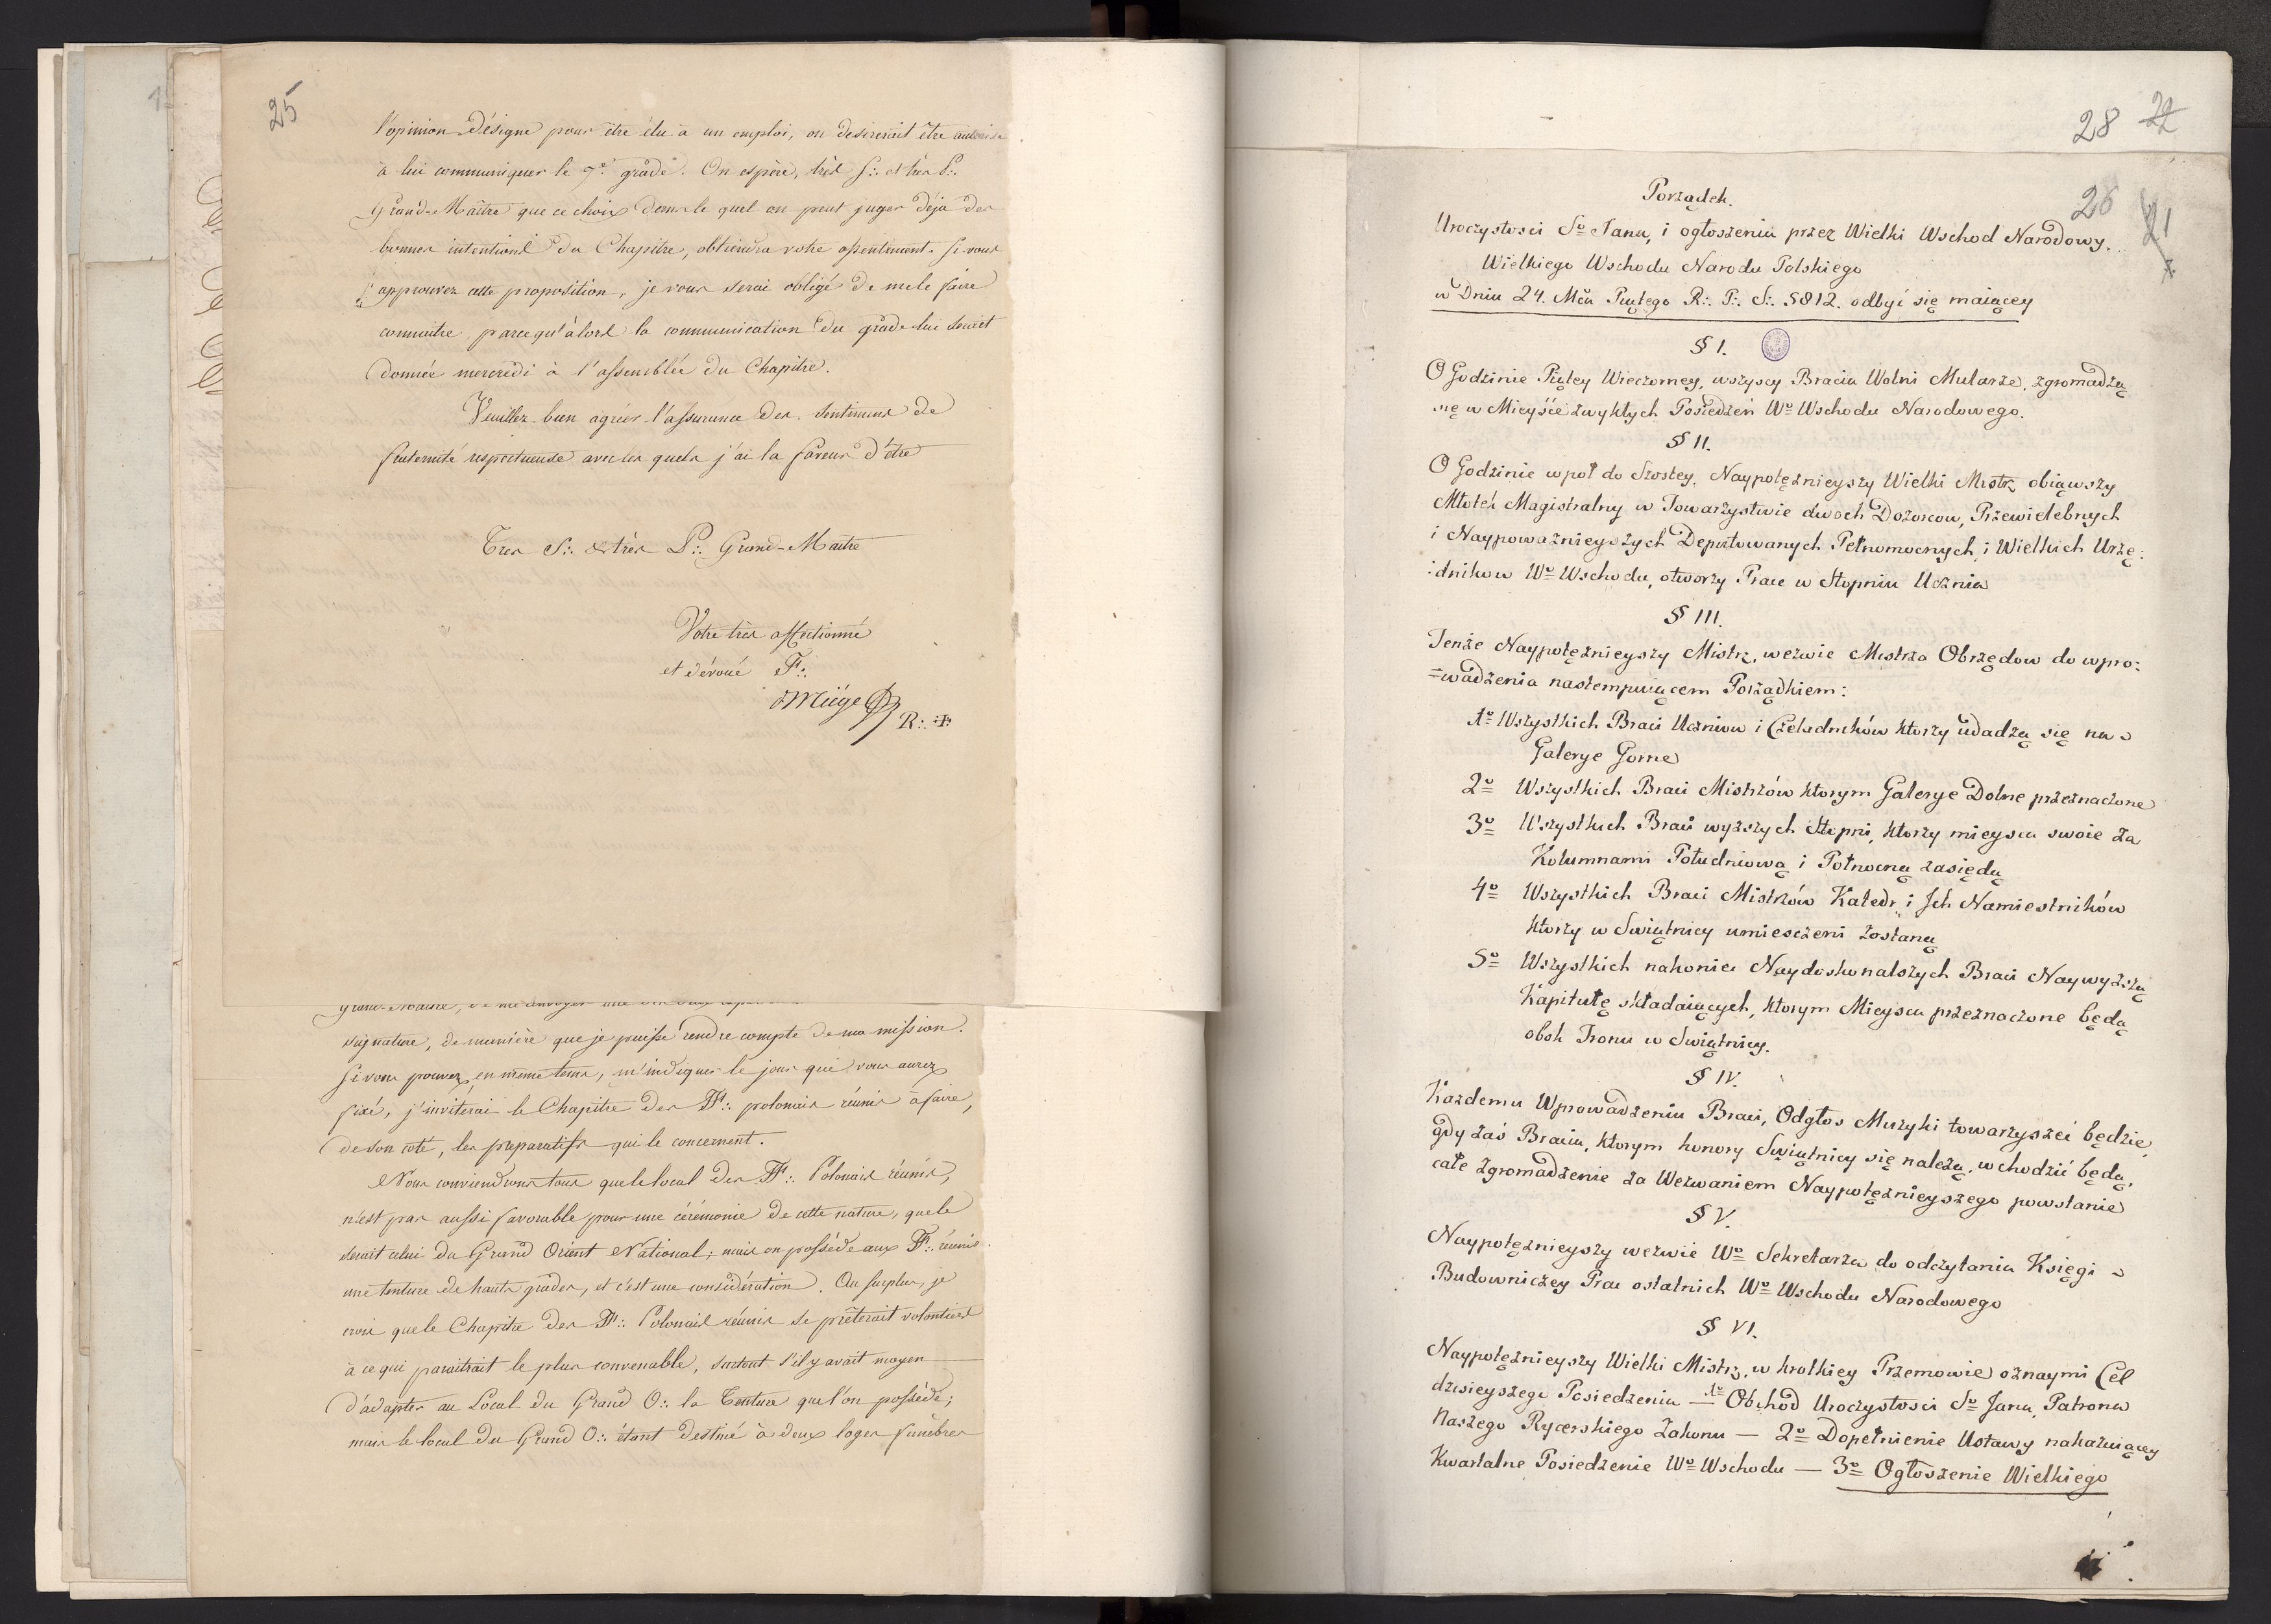 25
l'opinion désigne pour être élu à un emploi, on desirerait être autorisé
à lui communiquer le 7e grade. On espère, très S∴ et très P∴
Grand-Maître que ce choix dans le quel on peut juger déja des
bonnes intentions du Chapitre, obtiendra votre assentiment. Si vous
approuvez cette proposition, je vous serai obligé de me le faire
connaitre parcequ'àlors la communication du grade lui serait
donnée mercredi à l'assemblée du Chapitre.
Veuillez bien agréer l'assurance des sentimens de
fraternité respectueuse avec les quels j'ai la faveur d'être
Très S∴ & très P∴ Grand-Maître
Votre très affectionné
et dévoué F∴
Miége
R∴ ✠
signature, de manière que je puisse rendre compte de ma mission.
Si vous pouvez, en même tems, m'indiquer le jour que vous aurez
fixé, j'inviterai le Chapitre des FF∴ polonais réunis à faire,
de son coté, les préparatifs qui le concernent.
Nous conviendrons tous que le local des FF∴ Polonais réunis,
n'est pas aussi favorable pour une cérémonie de cette nature, que le
serait celui du Grand Orient National; mais on possède aux FF∴ réunis
une tenture de hauts grades, et c'est une considération. Au surplus, je
crois que le Chapitre des FF∴ Polonais réunis se prêterait volontiers
à ce qui paraitrait le plus convenable, surtout s'il y avait moyen
d'adapter au Local du Grand O∴ la Tenture que l'on possède;
mais le local du Grand O∴ étant destiné à deux loges funèbres
28 22
26 21
Porządek.
Uroczystosci So Jana, i ogłoszenia przez Wielki Wschod Narodowy.
Wielkiego Wschodu Narodu Polskiego
w Dniu 24. Mca Piątego R∴ P∴ S∴ 5812. odbyć się maiącey
§ I.
O Godzinie Piątey Wieczorney, wszyscy Bracia Wolni Mularze, zgromadzą
się w Mieyście zwykłych Posiedzeń Wo Wschodu Narodowego.
§ II.
O Godzinie wpoł do Szostey, Naypotężnieyszy Wielki Mistrz obiąwszy
Młotek Magistralny w Towarzystwie dwoch Dozorcow, Przewielebnych
i Naypoważnieyszych Deputowanych Pełnomocnych i Wielkich Urzę:
:dnikow Wo Wschodu, otworzy Prace w Stopniu Ucznia
§ III.
Tenże Naypotężnieyszy Mistrz, wezwie Mistrza Obrzędow do wpro:
=wadzenia nastempuiącem Porządkiem:
1o Wszystkich Braci Uczniow i Czeladników ktorzy udadzą się na
Galerye Gorne
2o Wszystkich Braci Mistrzów ktorym Galerye Dolne przeznaczone
3o Wszystkich Braci wyższych Stopni, ktorzy mieysca swoie za
Kolumnami Południową i Połnocną zasiędą
4o Wszystkich Braci Mistrzów Katedr i Ich Namiestników
ktorzy w Swiątnicy umiesczeni zostaną
5o Wszystkich nakoniec Naydoskonalszych Braci Naywyższą
Kapitułę składaiących, ktorym Mieysca przeznaczone będą
obok Tronu w Swiątnicy.
§ IV.
Każdemu Wprowadzeniu Braci, Odgłos Muzyki towarzyszeć będzie,
gdy zaś Bracia, ktorym honory Swiątnicy się należą, wchodzić będą,
całe zgromadzenie za Wezwaniem Naypotężnieyszego powstanie
§ V.
Naypotężnieyszy wezwie Wo Sekretarza do odczytania Księgi
Budowniczey Prac ostatnich Wo Wschodu Narodowego
§ VI.
Naypotężnieyszy Wielki Mistrz, w krotkiey Przemowie oznaymi Cel
dzisieyszego Posiedzenia — 1o Obchod Uroczystosci So Jana, Patrona
Naszego Rycerskiego Zakonu — 2o Dopełnienie Ustawy nakazuiącey
Kwartalne Posiedzenie Wo Wschodu — 3o Ogłoszenie Wielkiego